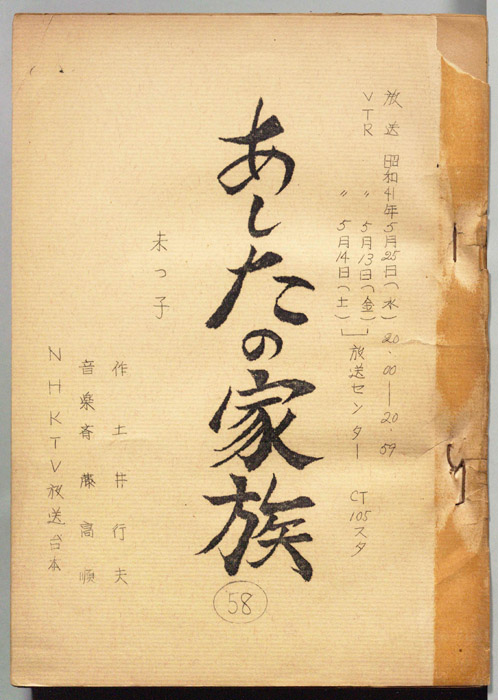 放送 昭和41年5月25日(水) 20.00―20.59
VTR 〃 5月13日(金)
〃 5月14日(土)
放送センター CT105スタ
あしたの家族
58
末っ子
作 土井行夫
音楽 斎藤高順
NHKTV放送台本